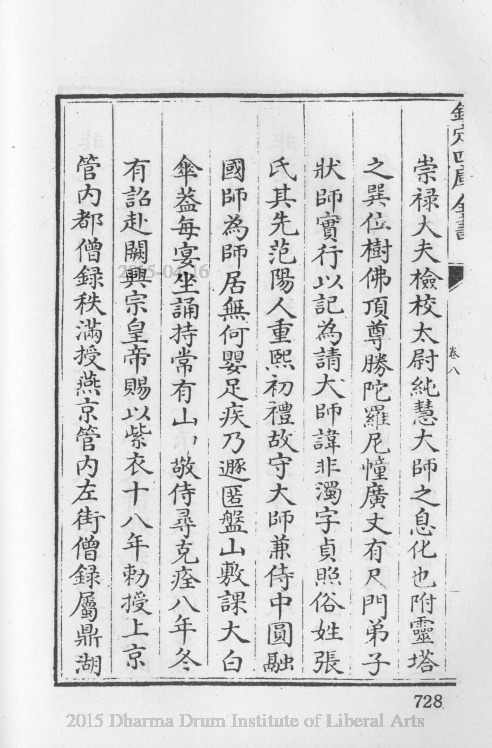 欽定四庫全書
卷八
崇禄大夫檢校太尉純慧大師之息化也附靈塔
之巽位樹佛頂尊勝陀羅尼幢廣丈有尺門弟子
狀師實行以記為請大師諱非濁字貞照俗姓張
氏其先范陽人重熙初禮故守大師兼侍中圓融
國師為師居無何嬰足疾乃遯匿盤山敷課大白
傘葢每宴坐誦持常有山 敬侍尋克痊八年冬
有詔赴闕興宗皇帝賜以紫衣十八年勅授上京
管内都僧録秩滿授燕京管内左街僧録屬鼎湖
728
2015 Dharma Drum Institute of Liberal Arts